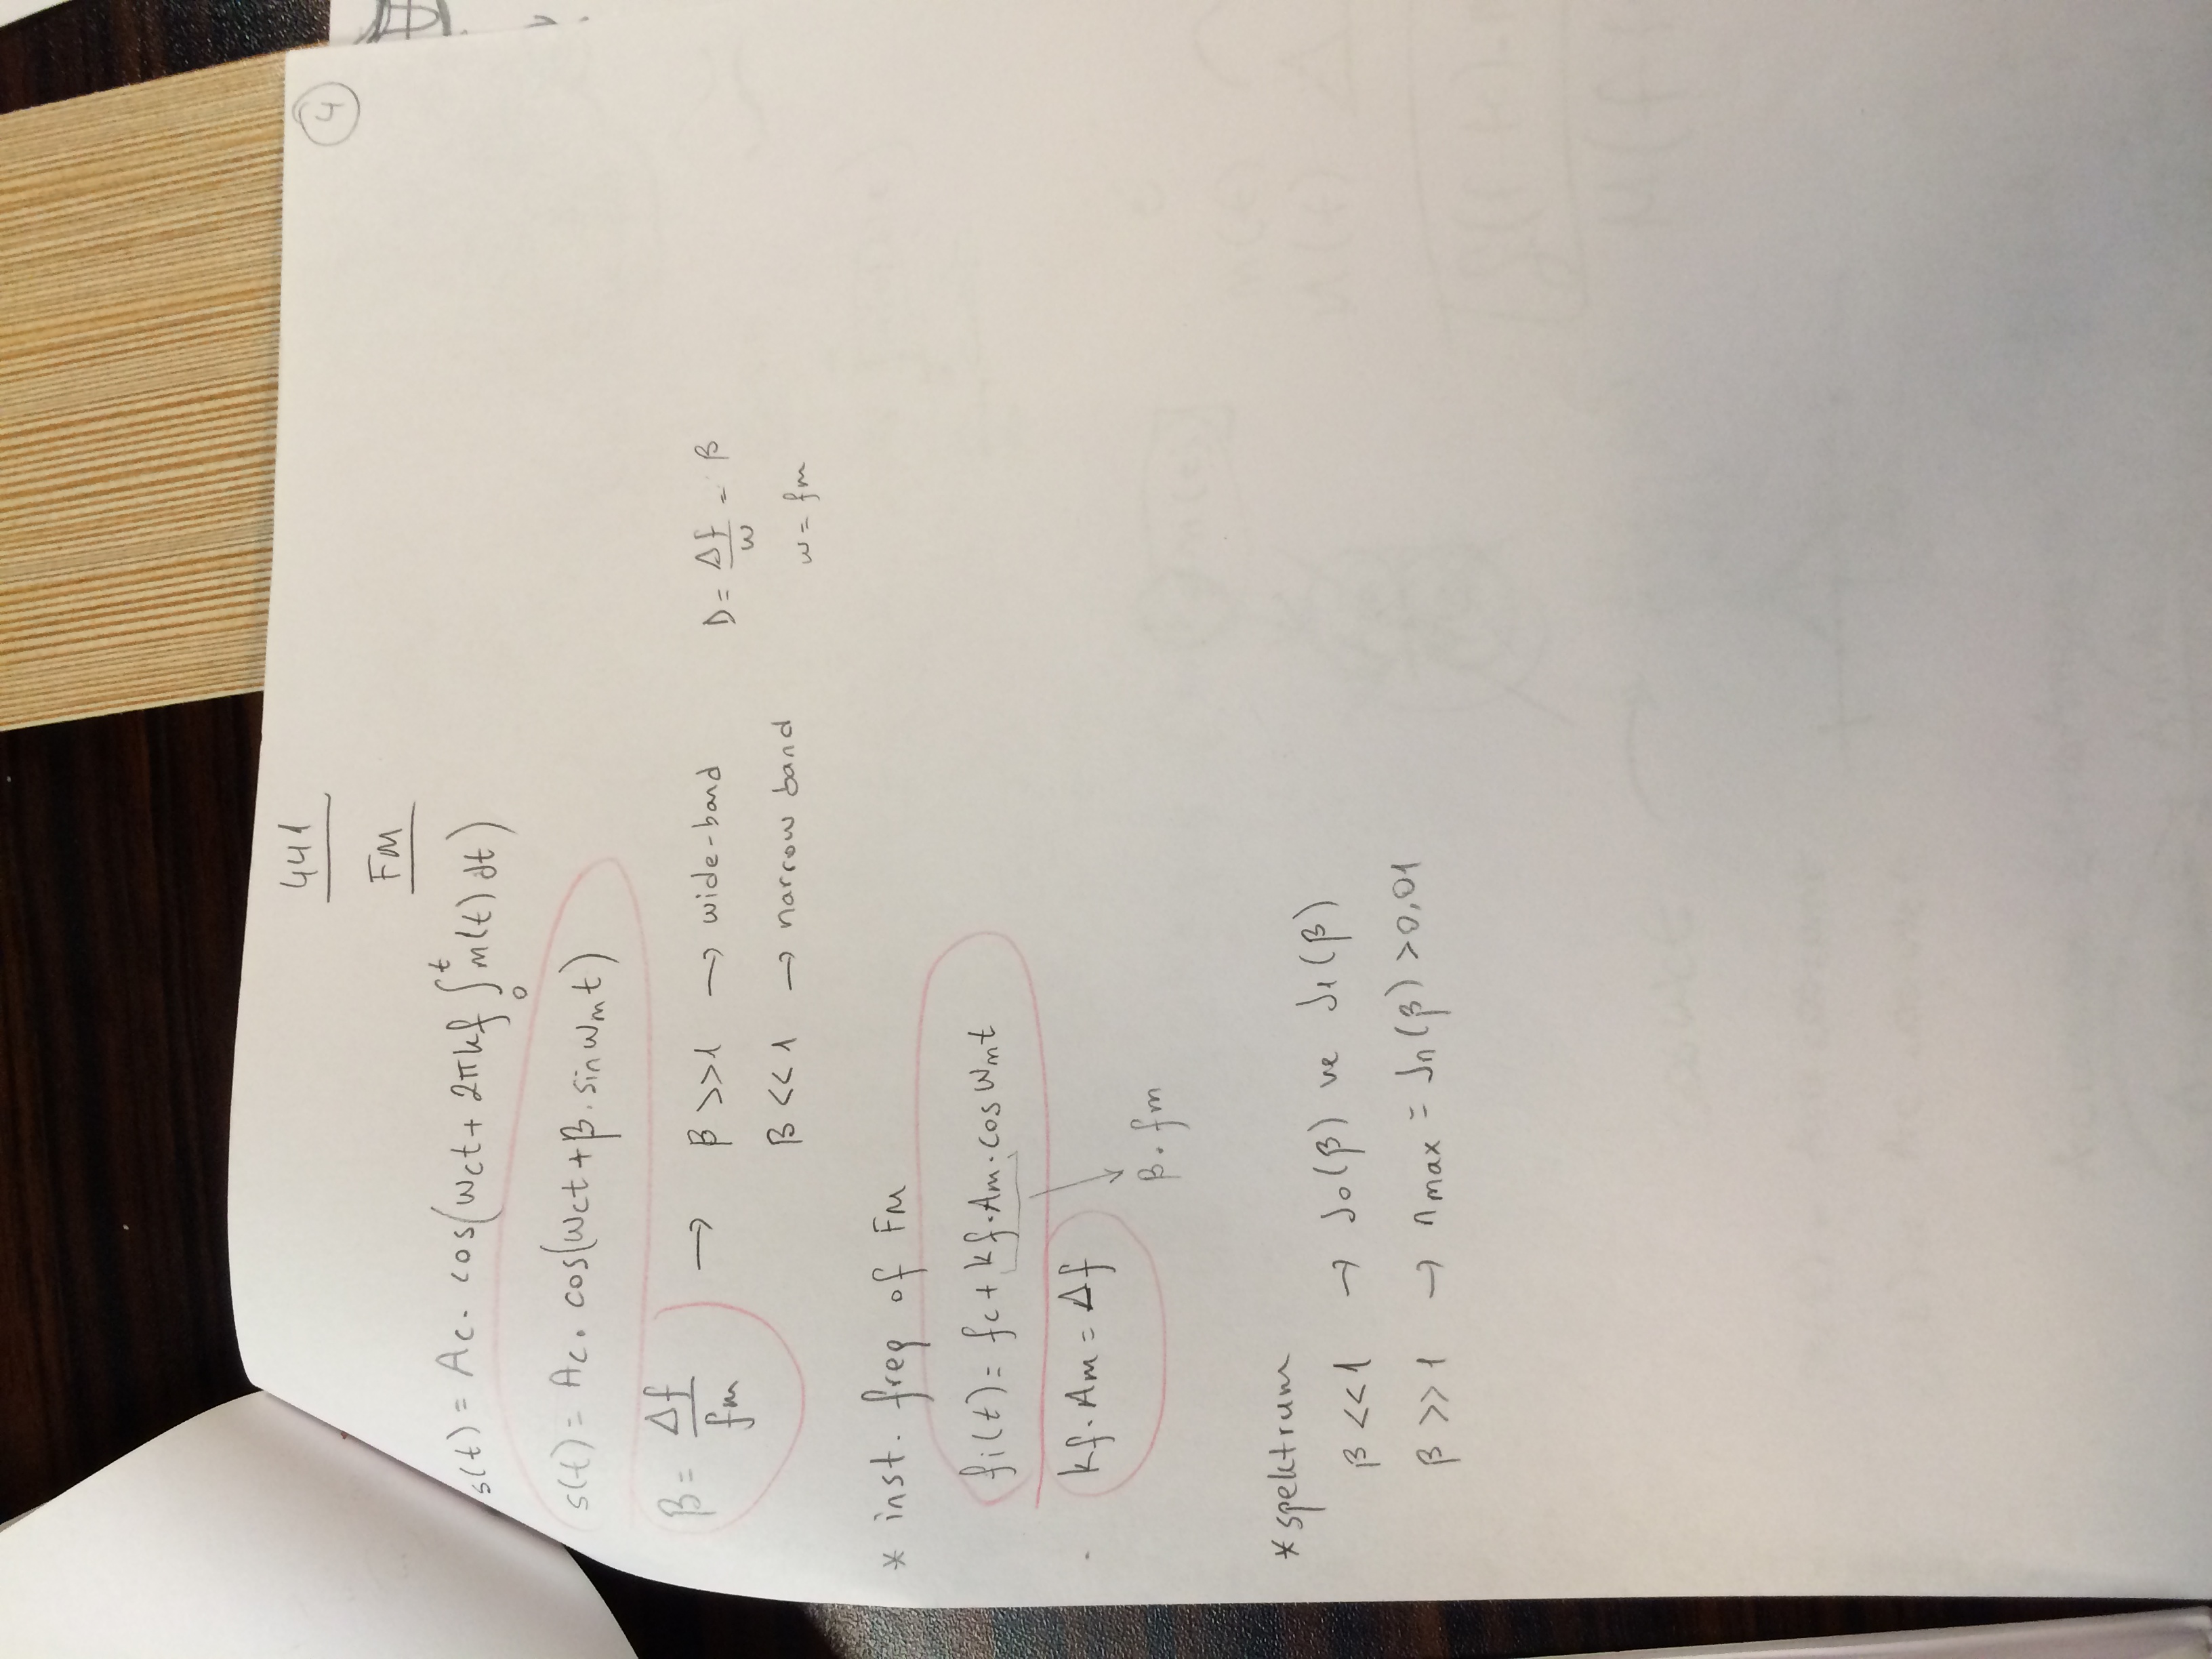 441
4
FM
s(t) = Ac. cos(wct + 2πkf ∫₀ᵗ m(t) dt)
s(t) = Ac. cos(wct + β. sin wmt)
β = Δf / fm → β >>1 → wide-band D = Δf / w = β
β << 1 → narrow band w = fm
* inst. freq of FM
fi(t) = fc + kf.Am.cos wmt
kf. Am = Δf
β. fm
* spektrum
β <<1 → J₀(β) ve J₁(β)
β >> 1 → nmax = Jn(β) >0,01